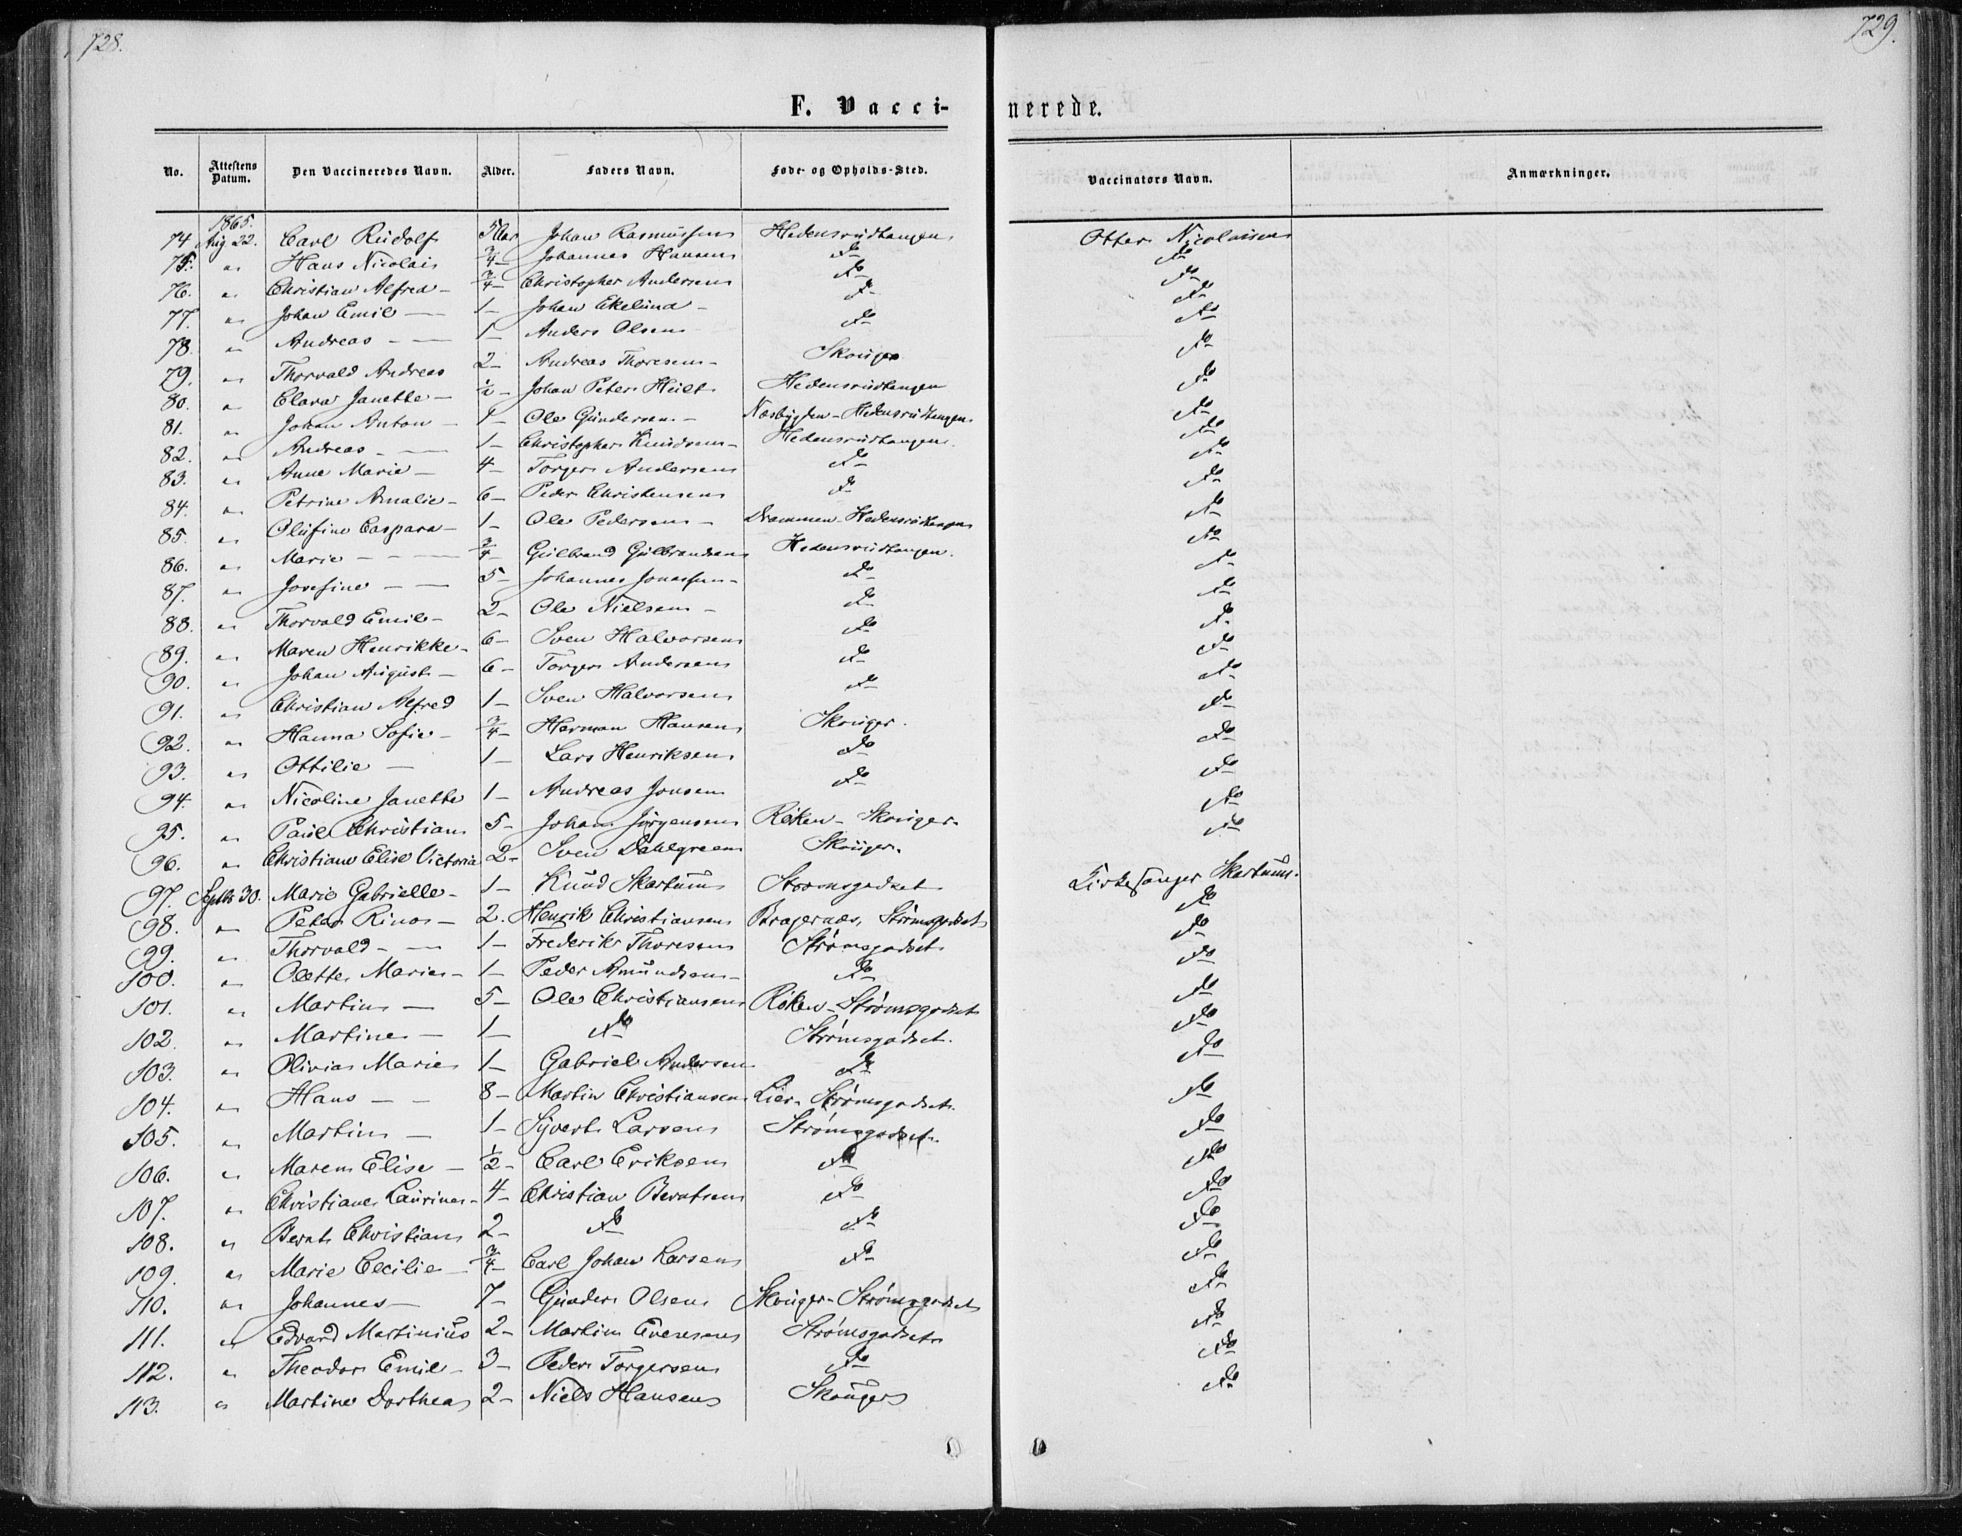 728.
729.
F. Vacci-
nerede.
No. Attestens Datum. Den Vaccineredes Navn. Alder. Faders Navn. Føde- og Opholds-Sted. Vaccinators Navn. Anmærkninger.
1865.
74 Aug 22. Carl Rudolf 5 Aar Johan Rasmussen Hedensrudtangen Otter Nicolaisen
75. " Hans Nicolai 3/4 - Johannes Hansen do do
76. " Christian Alfred - 3/4 - Christopher Andersen do do
77. " Johan Emil - 1 - Johan Ekelund - do do
78. " Andreas - - 1 - Anders Olsen do do
79. " Thorvald Andreas 2 - Andreas Thoresen - Skouger do
80. " Clara Janette - 1/2 - Johan Peter Hult Hedensrudtangen do
81. " Johan Anton - 1 - Ole Gundersen - Næsbygden - Hedensrudtangen do
82. " Andreas - - 1 - Christopher Knudsen - Hedensrudtangen. do
83. " Anne Marie - 4 - Torger Andersen do do
84. " Petrine Amalie - 6 - Peder Christensen do do
85. " Olufine Caspara - 1 - Ole Pedersen - Drammen - Hedensrudtangen do
86. " Marie - - - 3/4 - Gulbrand Gulbrandsen Hedensrudtangen. do
87. " Josefine - - 5 - Johannes Jonassen - do do
88. " Thorvald Emil - 2 - Ole Nielsen - do do
89. " Maren Henrikke - 6 - Sven Halvorsen do do
90. " Johan August - 6 - Torger Andersen do do
91. " Christian Alfred 1 - Sven Halvorsen do do
92. " Hanna Sofie - 3/4 - Herman Hansen Skouger. do
93. " Ottilie - 1 - Lars Henriksen do do
94. " Nicoline Janette 1 - Andreas Jonsen do do
95. " Paul Christian 5 - Johan Jørgensen Røken - Skouger. do
96. " Christiane Elise Victoria 2 - Sven Dahlgreen Skouger. do
97. Septbr 30. Marie Gabrielle - 1 - Knud Skartum Strømsgodset Kirkesanger Skartum.
98. " Peter Rinos - 2. Henrik Christiansen Bragernæs, Strømsgodset do
99. " Thorvald - - 1 - Frederik Thoresen Strømsgodset do
100. " Olette Marie - 1 - Peder Amundsen - do do
101. " Martin - 5 - Ole Christiansen Røken - Strømsgodset do
102. " Martine - 1 - do Strømsgodset. do
103. " Olivia Marie 1 - Gabriel Andersen do do
104. " Hans - - 8 - Martin Christiansen Lier - Strømsgodset. do
105. " Martin - 1 - Syvert Larsen Strømsgodset. do
106. " Maren Elise - 1/2 - Carl Eriksen do do
107. " Christiane Laurine - 4 - Christian Berntsen do do
108. " Bernt Christian 2 - do do do
109. " Marie Cecilie - 3/4 - Carl Johan Larsen do do
110. " Johannes - 7 - Gunder Olsen Skouger - Strømsgodset do
111. " Edvard Martinius 2 - Martin Evensen Strømsgodset do
112. " Theodor Emil - 3 - Peder Torgersen do do
113. " Martine Dorthea 2 - Niels Hansen Skouger do